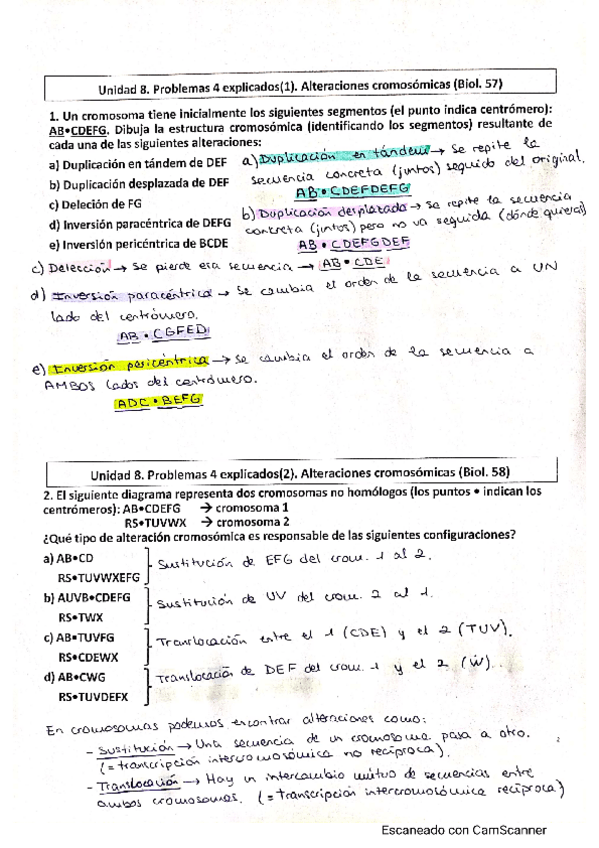 Unidad 8. Problemas 4 explicados(1). Alteraciones cromosómicas (Biol. 57)
1. Un cromosoma tiene inicialmente los siguientes segmentos (el punto indica centrómero):
AB•CDEFG. Dibuja la estructura cromosómica (identificando los segmentos) resultante de
cada una de las siguientes alteraciones:
a) Duplicación en tándem de DEF
b) Duplicación desplazada de DEF
c) Deleción de FG
d) Inversión paracéntrica de DEFG
e) Inversión pericéntrica de BCDE
a) Duplicación en tándem → Se repite la
secuencia concreta (juntos) seguido del original.
AB • CDEFDEFG
b) Duplicación desplazada → se repite la secuencia
concreta (juntos) pero no va seguida (dónde quieras)
AB • CDEFGDEF
c) Delección → Se pierde esa secuencia → AB • CDE
d) Inversión paracéntrica → Se cambia el orden de la secuencia a UN
lado del centrómero.
AB • CGFED
e) Inversión pericéntrica → Se cambia el orden de la secuencia a
AMBOS lados del centrómero.
ADC • BEFG
Unidad 8. Problemas 4 explicados(2). Alteraciones cromosómicas (Biol. 58)
2. El siguiente diagrama representa dos cromosomas no homólogos (los puntos • indican los
centrómeros): AB•CDEFG → cromosoma 1
RS•TUVWX → cromosoma 2
¿Qué tipo de alteración cromosómica es responsable de las siguientes configuraciones?
a) AB•CD
RS•TUVWXEFG
Sustitución de EFG del crom. 1 al 2.
b) AUVB•CDEFG
RS•TWX
Sustitución de UV del crom. 2 al 1.
c) AB•TUVFG
RS•CDEWX
Translocación entre el 1 (CDE) y el 2 (TUV).
d) AB•CWG
RS•TUVDEFX
Translocación de DEF del crom. 1 y el 2 (W).
En cromosomas podemos encontrar alteraciones como:
- Sustitución → Una secuencia de un cromosoma pasa a otro.
(= transcripción intercromosómica no recíproca).
- Translocación → Hay un intercambio mútuo de secuencias entre
ambos cromosomas. (= Transcripción intercromosómica recíproca)
Escaneado con CamScanner